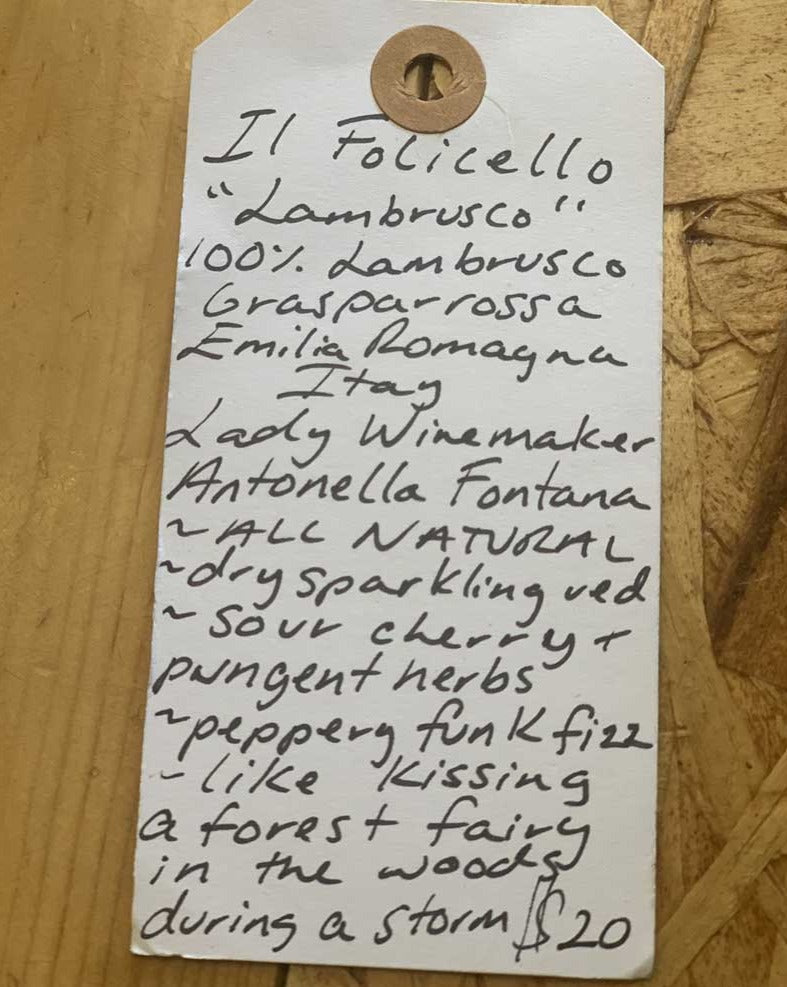 Il Folicello
"Lambrusco"
100% Lambrusco
Grasparrossa
Emilia Romagna
Itay
Lady Winemaker
Antonella Fontana
~ALL NATURAL
~dry sparkling red
~sour cherry +
pungent herbs
~peppery funk fizz
~like kissing
a forest fairy
in the woods
during a storm $20